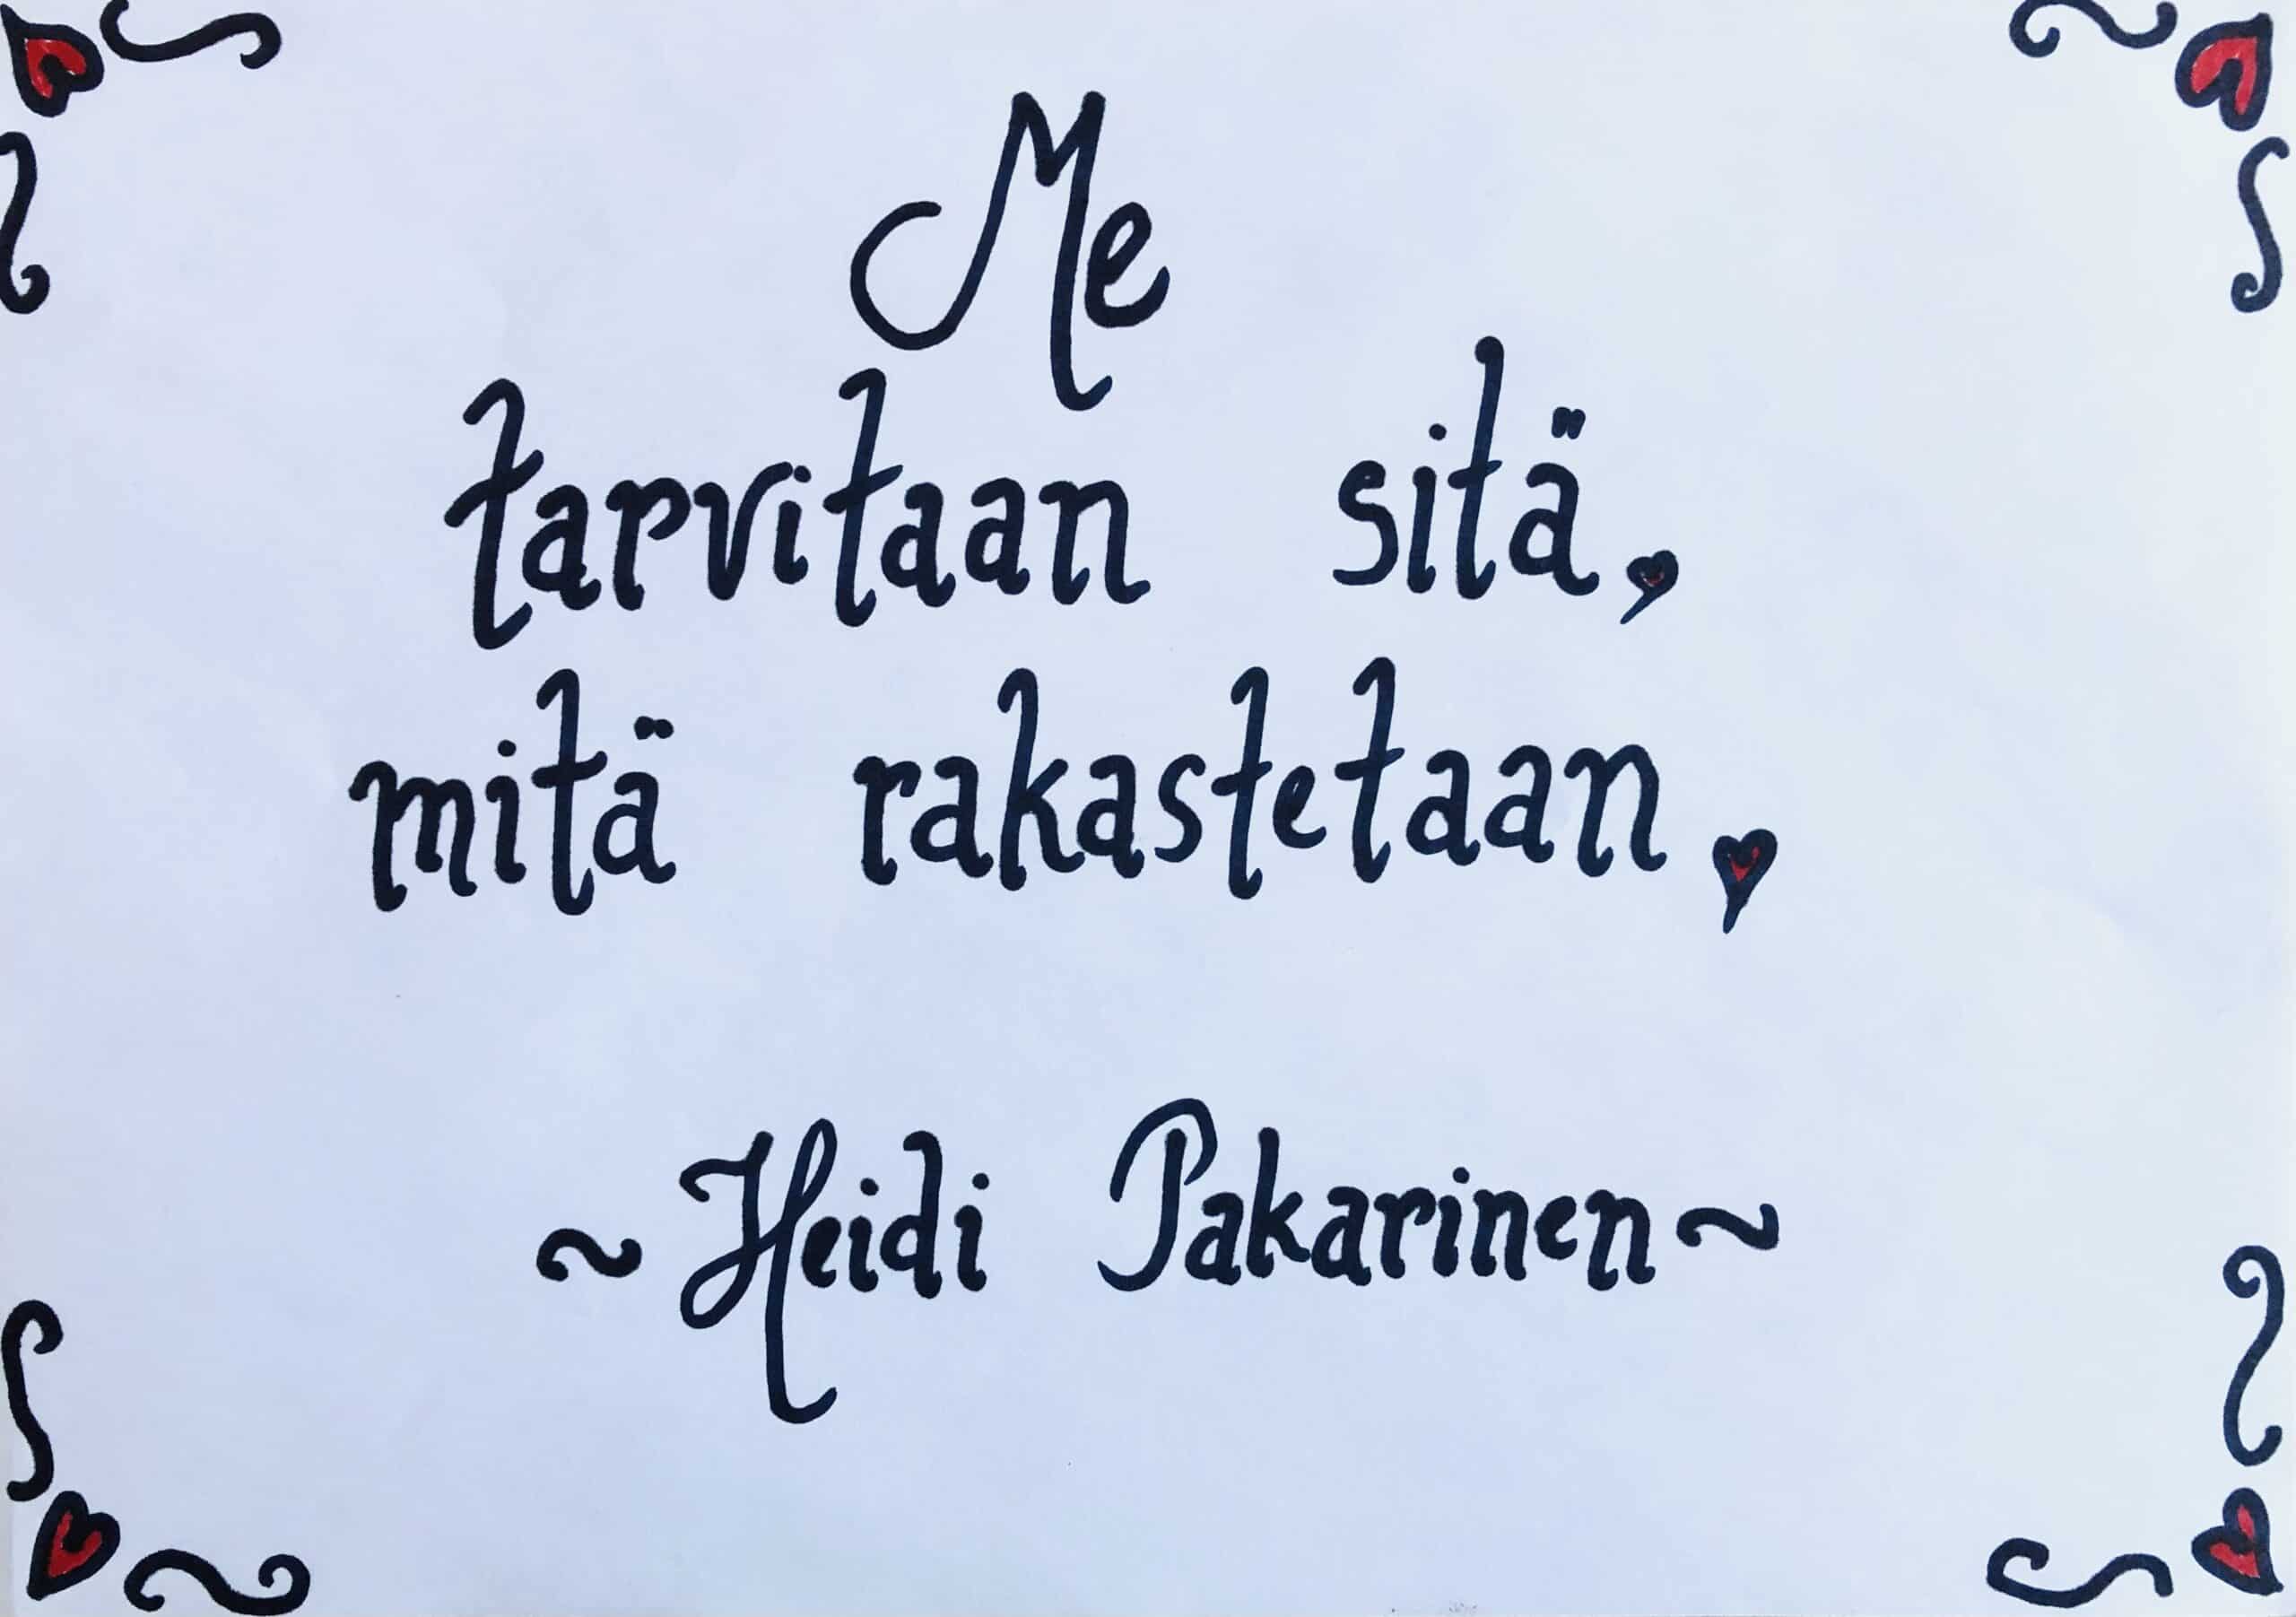 Me
tarvitaan sitä,
mitä rakastetaan.
~Heidi Pakarinen~